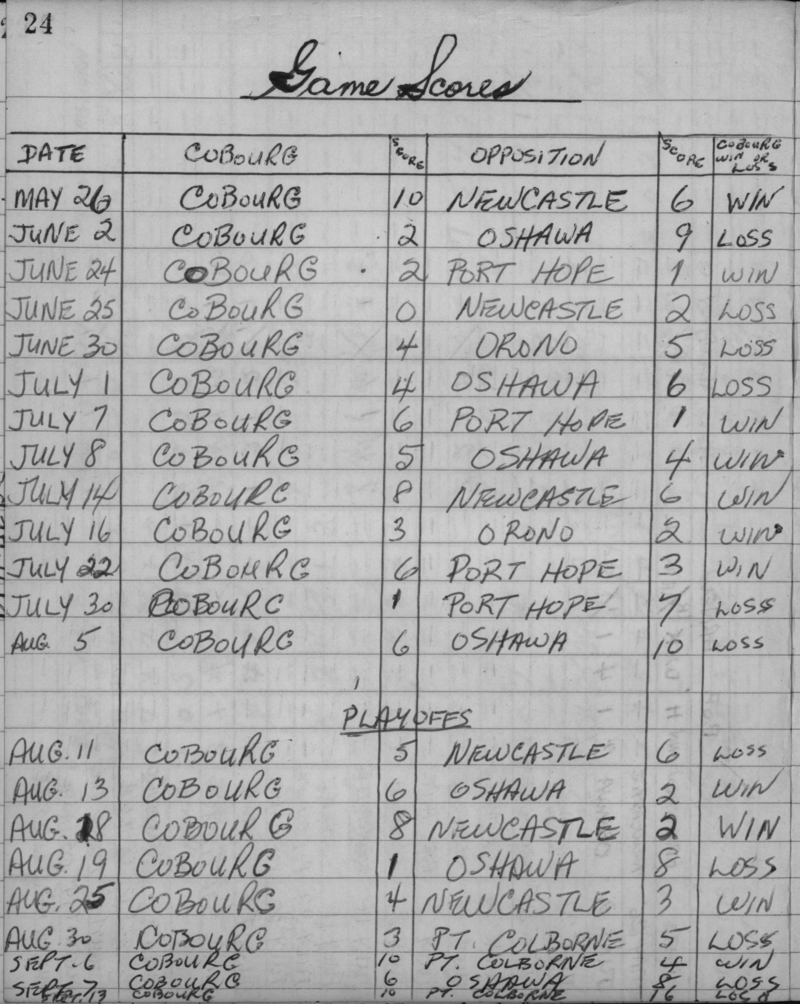 24
Game Scores
DATE COBOURG SCORE OPPOSITION SCORE COBOURG WIN OR LOSS
MAY 26 COBOURG 10 NEWCASTLE 6 WIN
JUNE 2 COBOURG 2 OSHAWA 9 LOSS
JUNE 24 COBOURG 2 PORT HOPE 1 WIN
JUNE 25 COBOURG 0 NEWCASTLE 2 LOSS
JUNE 30 COBOURG 4 ORONO 5 LOSS
JULY 1 COBOURG 4 OSHAWA 6 LOSS
JULY 7 COBOURG 6 PORT HOPE 1 WIN
JULY 8 COBOURG 5 OSHAWA 4 WIN
JULY 14 COBOURG 8 NEWCASTLE 6 WIN
JULY 16 COBOURG 3 ORONO 2 WIN
JULY 22 COBOURG 6 PORT HOPE 3 WIN
JULY 30 COBOURG 1 PORT HOPE 7 LOSS
AUG. 5 COBOURG 6 OSHAWA 10 LOSS
PLAYOFFS
AUG. 11 COBOURG 5 NEWCASTLE 6 LOSS
AUG. 13 COBOURG 6 OSHAWA 2 WIN
AUG. 18 COBOURG 8 NEWCASTLE 2 WIN
AUG. 19 COBOURG 1 OSHAWA 8 LOSS
AUG. 25 COBOURG 4 NEWCASTLE 3 WIN
AUG 30 COBOURG 3 PT. COLBORNE 5 LOSS
SEPT. 6 COBOURG 10 PT. COLBORNE 4 WIN
SEPT. 7 COBOURG 6 OSHAWA 8 LOSS
SEPT. 13 COBOURG 10 PT. COLBORNE 16